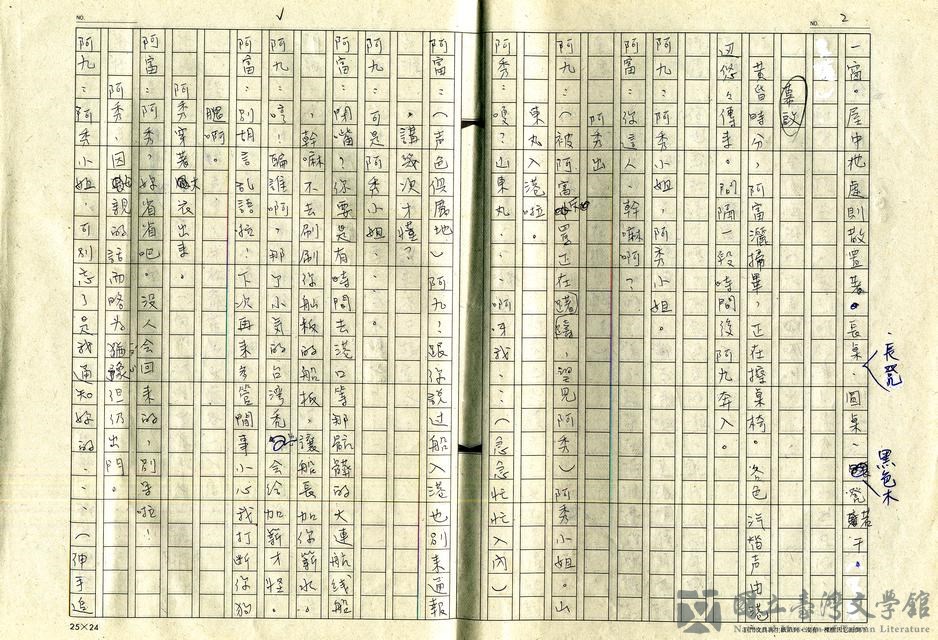 NO. 2
一窗。屋中地處則散置著。長桌、圓桌、凳若干。
長凳
黑色木
幕啟
黃昏時分，阿富灑掃畢，正在擦桌椅。各色汽笛声由港
边悠々傳來。間隔一段時間後阿九奔入。
阿九：阿秀小姐，阿秀小姐。
阿富：你這人幹嘛啊？
阿秀出
阿九：（被阿富罵正在躊躇，望見阿秀）阿秀小姐。山
東丸入港啦。
阿秀：噢？山東丸‥啊‥我‥‥（急急忙忙入內）
NO.
阿富：（声色俱厲地）阿九？跟你說过船入港也別来通報
。講幾次才懂？
阿九：可是阿秀小姐‥。
阿富：閉嘴？你要是有時間去港口等那骯髒的大連航线船
，幹嘛不去刷你舢板的船板，讓船長加你薪水。
阿九：唷，騙誰啊，那个小気的台灣禿，会给加薪才怪。
阿富：別胡言乱語啦，下次再来多管閒事小心我打斷你狗
腿啊。
阿秀穿著木衣出来。
阿富：阿秀，妳省省吧。没人会回来的，別呆啦！
阿秀，因親的話而略为猶豫但仍出門。
阿九：阿秀小姐，可別忘了是我通知妳的‥‥（伸手追
25×24
國立臺灣文學館
National Museum of Taiwan Literature